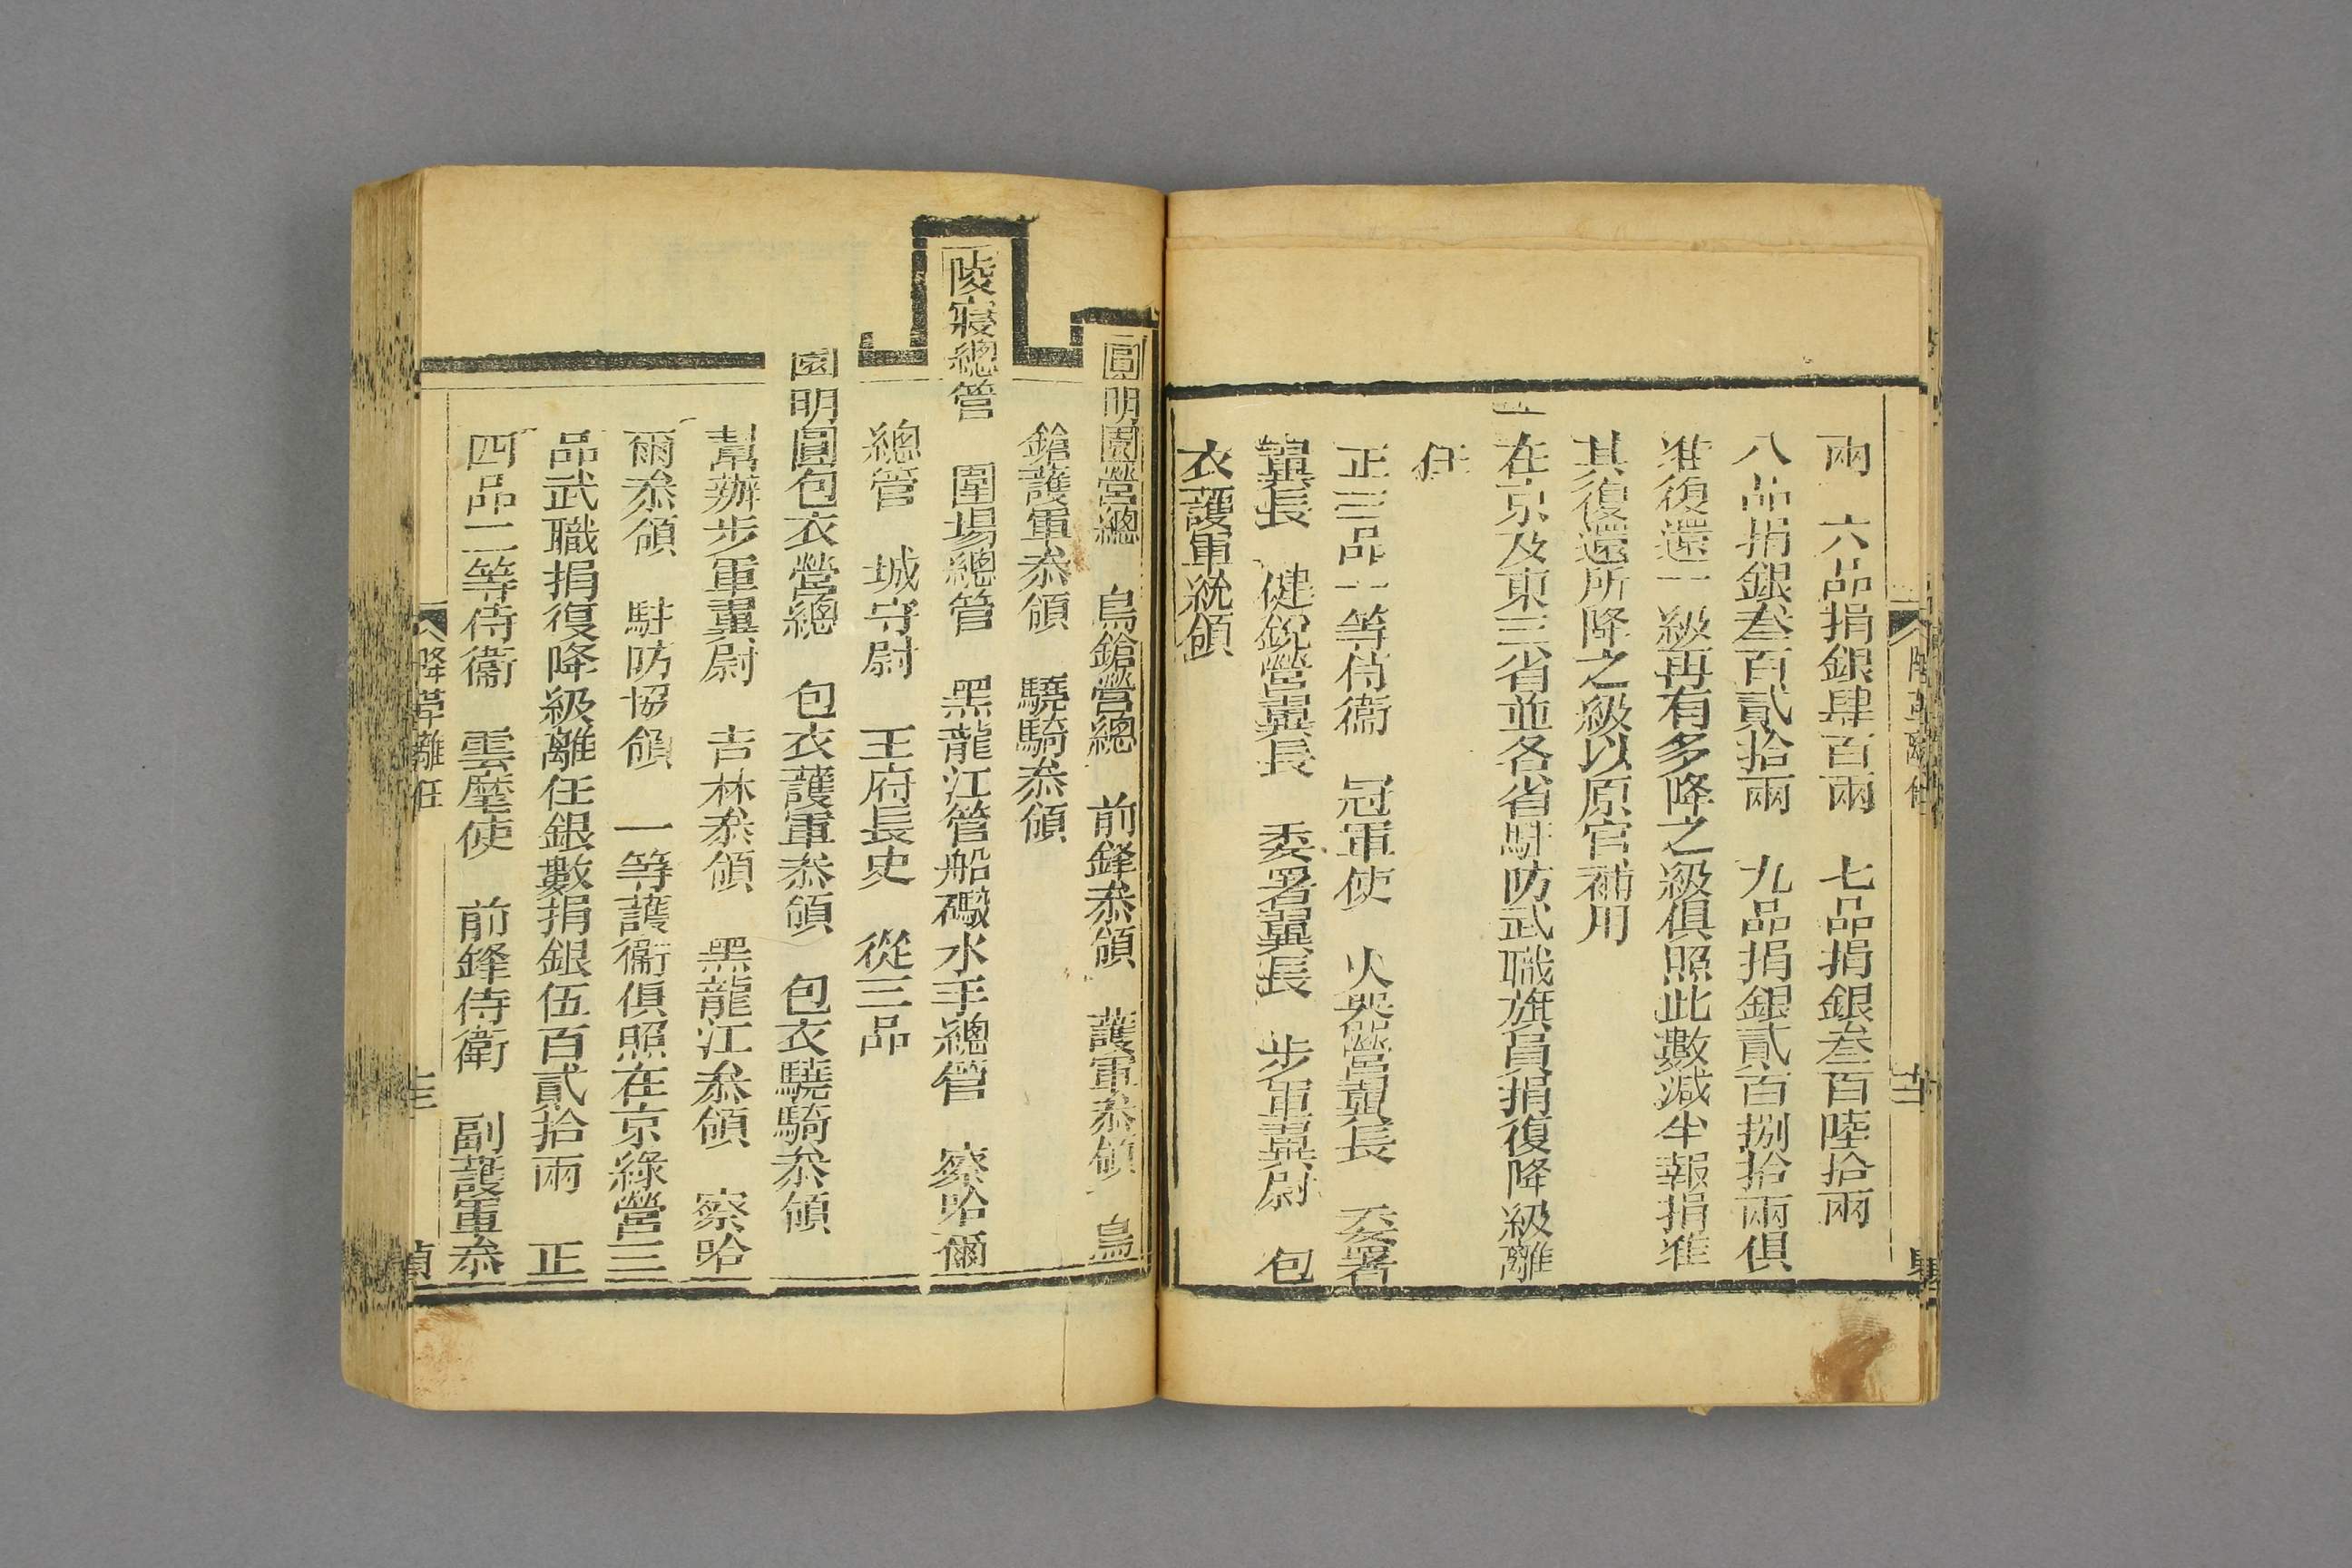 兩　六品捐銀肆百兩　七品捐銀叁百陸拾兩
八品捐銀叁百貳拾兩　九品捐銀貳百捌拾兩俱
准復還一級再有多降之級俱照此數減半報捐准
其復還所降之級以原官補用
一在京及東三省並各省駐防武職旗員捐復降級離
任
正三品一等侍衞　冠軍使　火器營翼長　委署
翼長　健銳營翼長　委署翼長　步軍翼尉　包
衣護軍統領
圓明園營總　鳥鎗營總　前鋒叅領　護軍叅領　鳥
鎗護軍叅領　驍騎叅領
陵寢總管　圍場總管　黑龍江管船礮水手總管　察哈爾
總管　城守尉　王府長史　從三品
圓明園包衣營總　包衣護軍叅領　包衣驍騎叅領
幫辦步軍翼尉　吉林叅領　黑龍江叅領　察哈
爾叅領　駐防協領　一等護衞俱照在京綠營三
品武職捐復降級離任銀數捐銀伍百貳拾兩　正
四品二等侍衞　雲麾使　前鋒侍衛　副護軍叅
降革離任